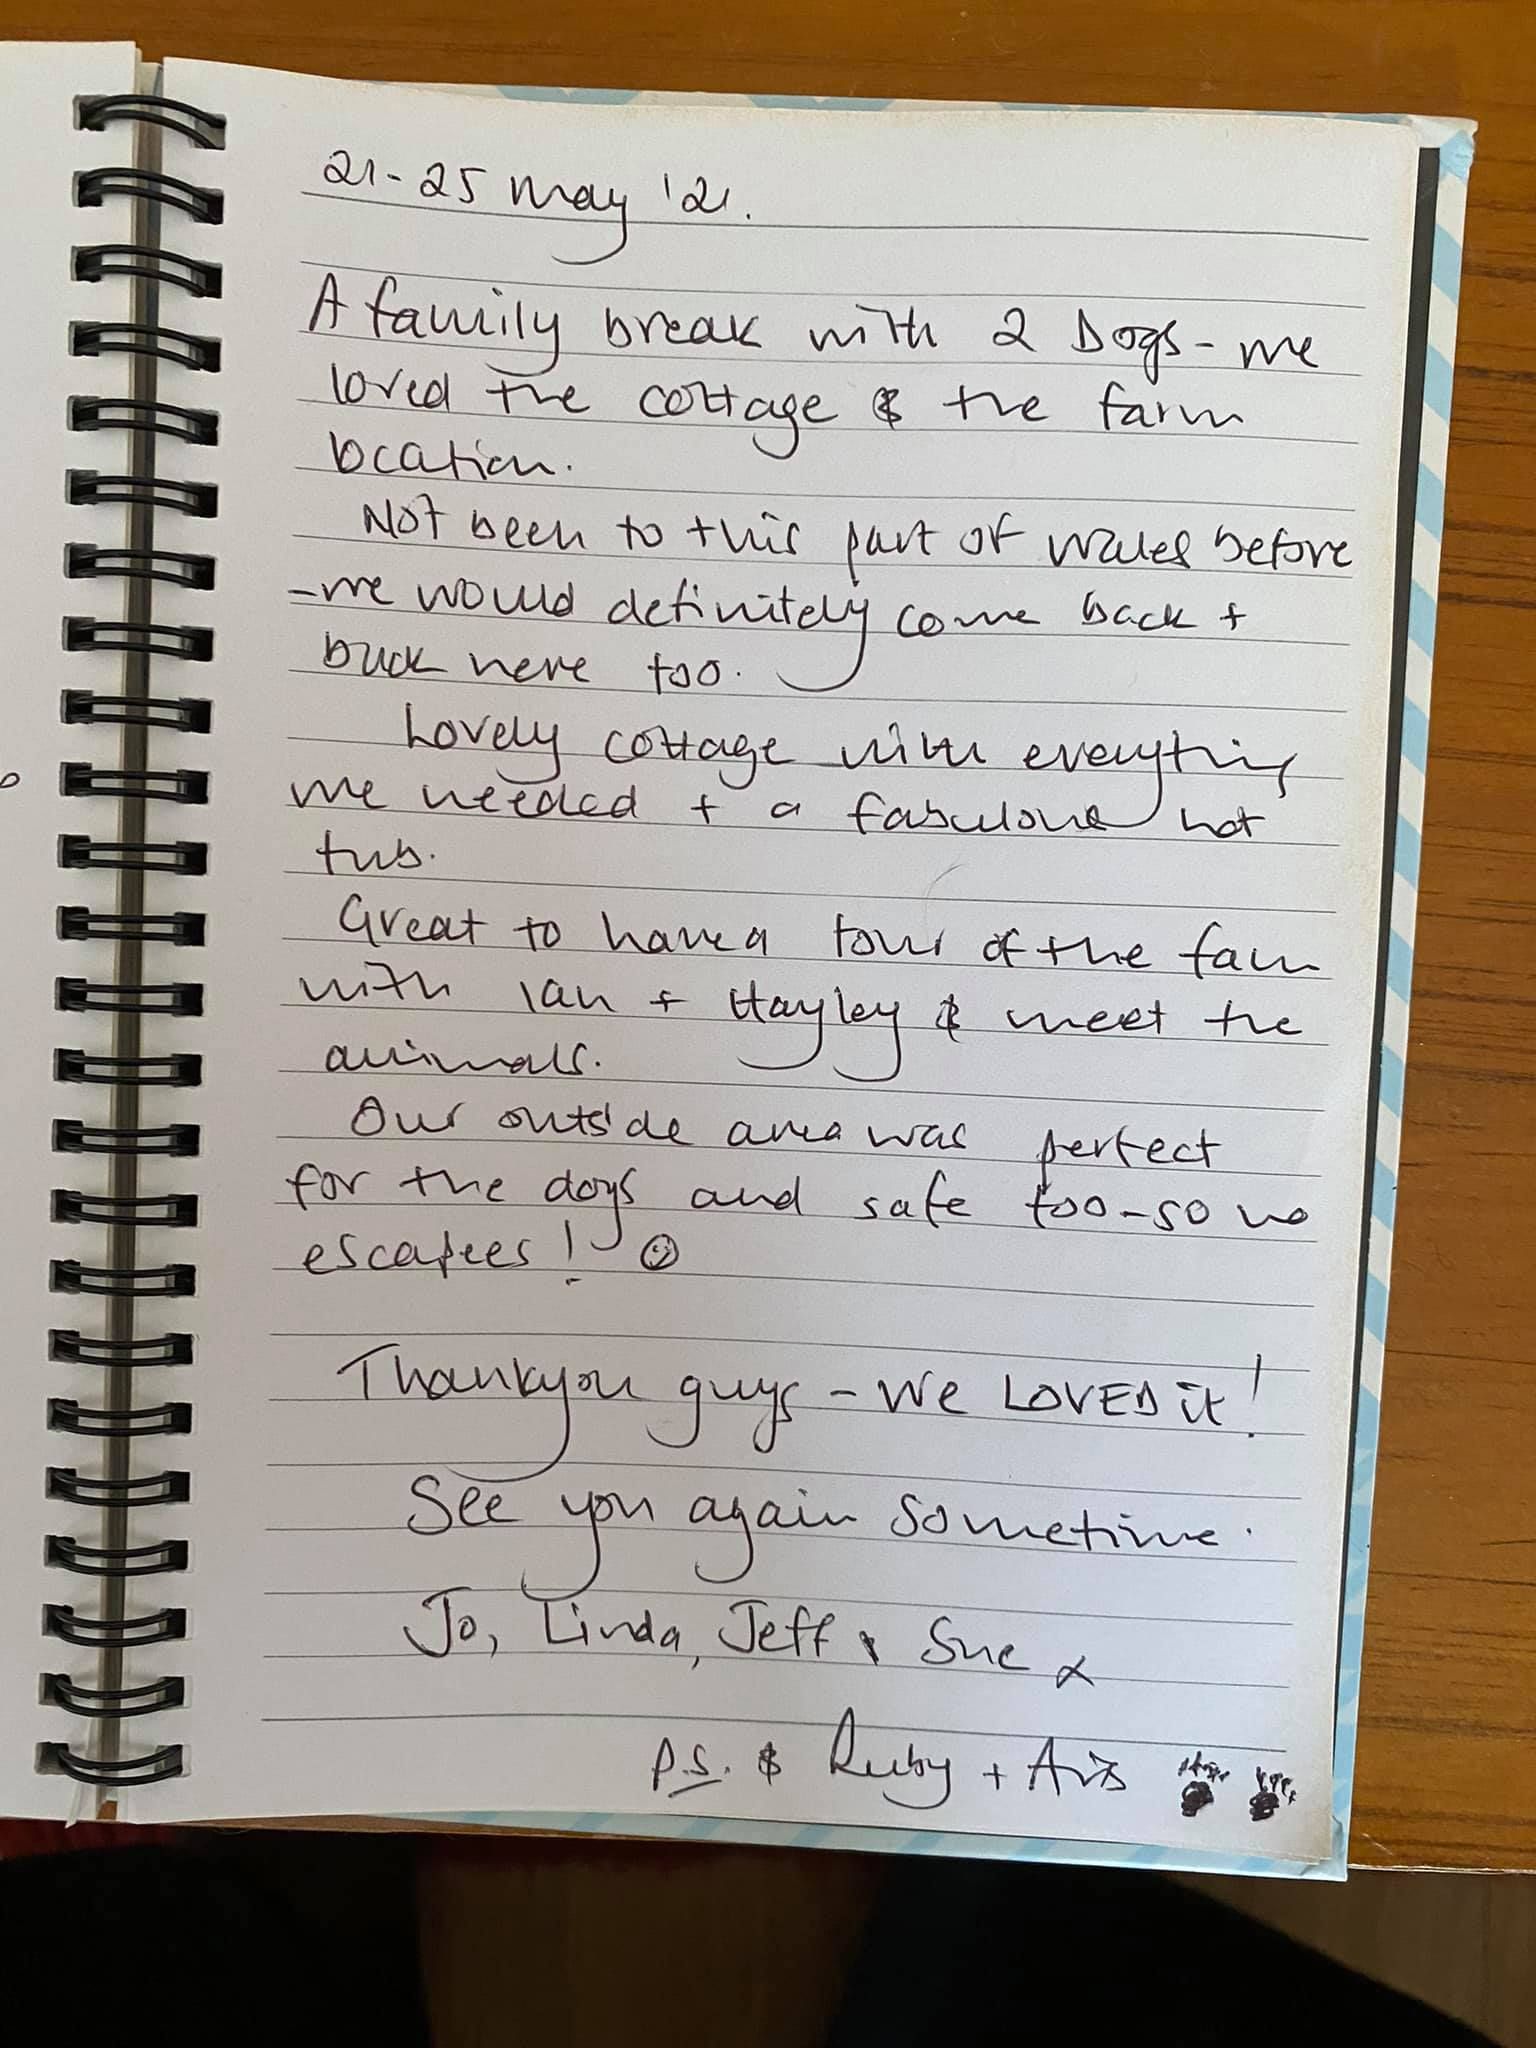 21-25 May '21.
A family break with 2 Dogs - we
loved the cottage & the farm
location.
Not been to this part of Wales before
- we would definitely come back +
back here too.
Lovely cottage with everything
we needed + a fabulous hot
tub.
Great to have a tour of the farm
with Ian + Hayley & meet the
animals.
Our outside area was perfect
for the dogs and safe too - so no
escapees! ☺
Thankyou guys - We LOVED it!
See you again sometime.
Jo, Linda, Jeff & Sue x
P.S. & Ruby +